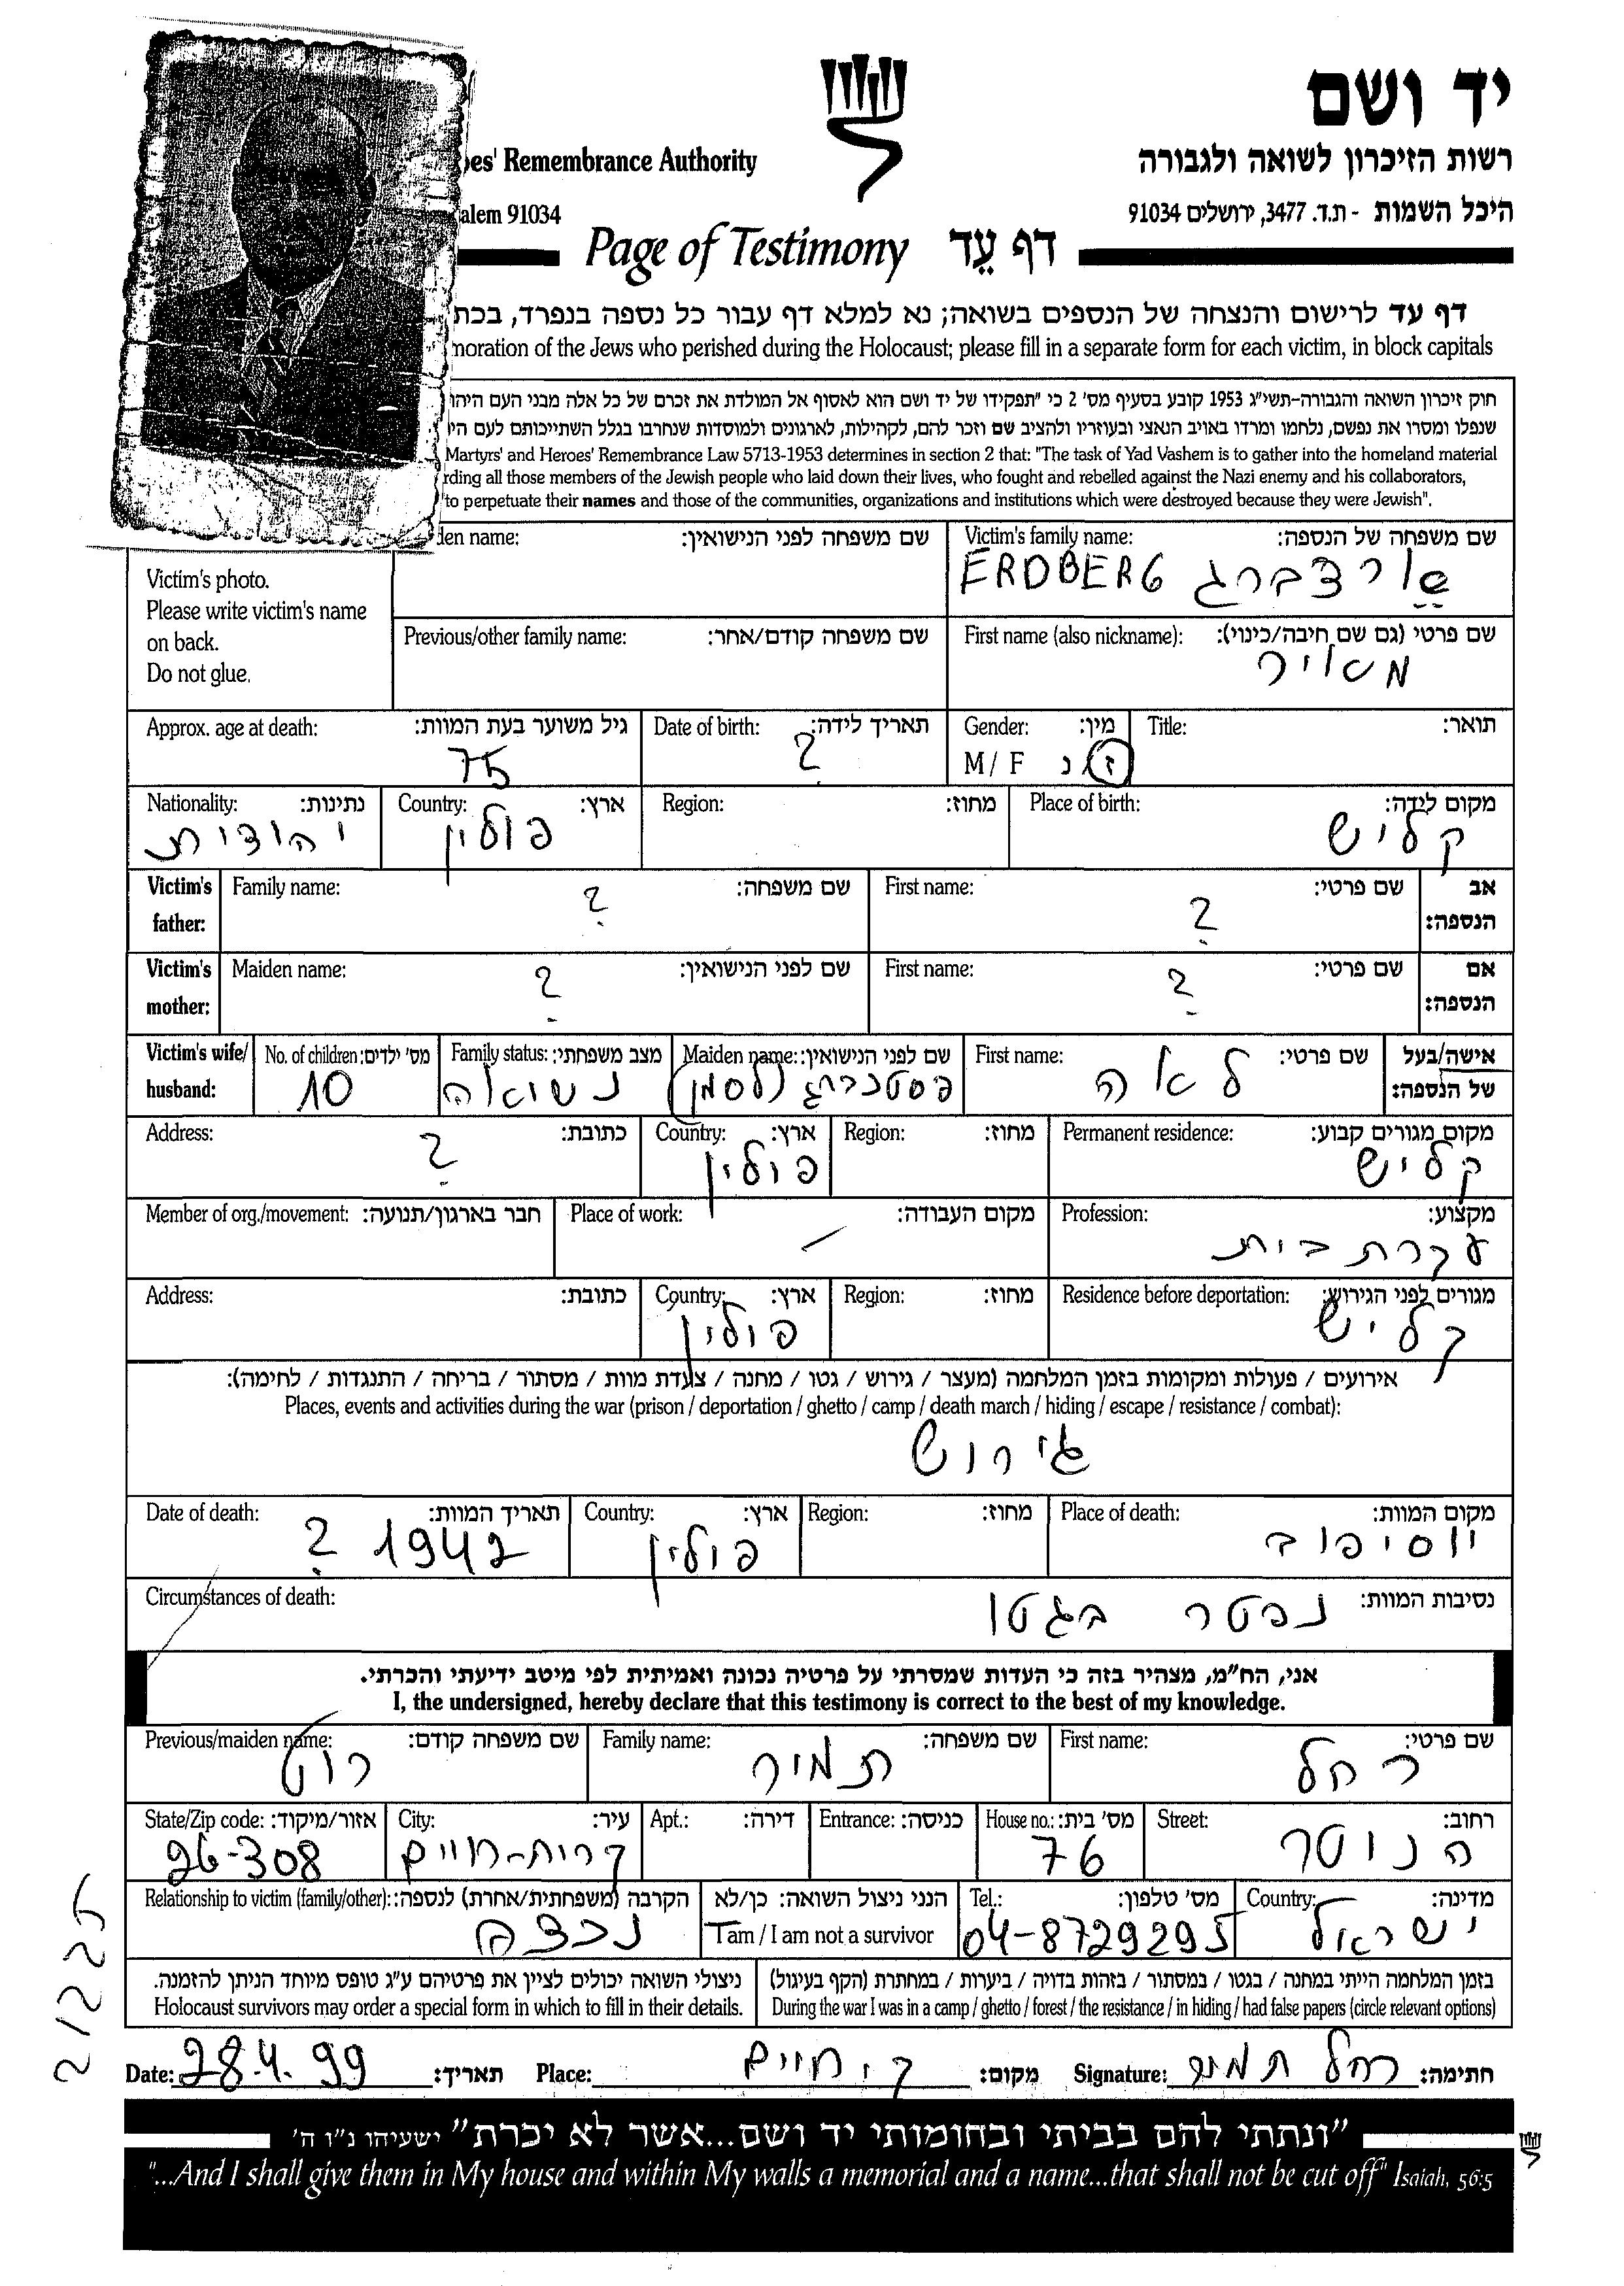 יד ושם
רשות הזיכרון לשואה ולגבורה
oes' Remembrance Authority
היכל השמות - ת.ד. 3477, ירושלים 91034
alem 91034
דף עֵד Page of Testimony
דף עד לרישום והנצחה של הנספים בשואה; נא למלא דף עבור כל נספה בנפרד, בכת
moration of the Jews who perished during the Holocaust; please fill in a separate form for each victim, in block capitals
חוק זיכרון השואה והגבורה-תשי״ג 1953 קובע בסעיף מס' 2 כי "תפקידו של יד ושם הוא לאסוף אל המולדת את זכרם של כל אלה מבני העם היהו
שנפלו ומסרו את נפשם, נלחמו ומרדו באויב הנאצי ובעוזריו ולהציב שם וזכר להם, לקהילות, לארגונים ולמוסדות שנחרבו בגלל השתייכותם לעם הי
Martyrs' and Heroes' Remembrance Law 5713-1953 determines in section 2 that: "The task of Yad Vashem is to gather into the homeland material
rding all those members of the Jewish people who laid down their lives, who fought and rebelled against the Nazi enemy and his collaborators,
to perpetuate their names and those of the communities, organizations and institutions which were destroyed because they were Jewish".
שם משפחה של הנספה: Victim's family name: שם משפחה לפני הנישואין: den name:
ERDBERG
Victim's photo.
Please write victim's name
on back.
Do not glue.
שם פרטי (גם שם חיבה/כינוי): First name (also nickname): שם משפחה קודם/אחר: Previous/other family name:
מאיר
תואר: Title: מין: Gender: תאריך לידה: Date of birth: גיל משוער בעת המוות: Approx. age at death:
ז/נ M / F ? 75
מקום לידה: Place of birth: מחוז: Region: ארץ: Country: נתינות: Nationality:
קליש פולין יהודית
אב הנספה: שם פרטי: First name: שם משפחה: Family name: Victim's father:
? ?
אם הנספה: שם פרטי: First name: שם לפני הנישואין: Maiden name: Victim's mother:
? ?
אישה/בעל של הנספה: שם פרטי: First name: שם לפני הנישואין: Maiden name: מצב משפחתי: Family status: מס' ילדים: No. of children: Victim's wife/ husband:
לאה נשואה 10
מקום מגורים קבוע: Permanent residence: מחוז: Region: ארץ: Country: כתובת: Address:
קליש פולין ?
מקצוע: Profession: מקום העבודה: Place of work: חבר בארגון/תנועה: Member of org./movement:
עקרת בית –
מגורים לפני הגירוש: Residence before deportation: מחוז: Region: ארץ: Country: כתובת: Address:
קליש פולין
אירועים / פעולות ומקומות בזמן המלחמה (מעצר / גירוש / גטו / מחנה / צעדת מוות / מסתור / בריחה / התנגדות / לחימה):
Places, events and activities during the war (prison / deportation / ghetto / camp / death march / hiding / escape / resistance / combat):
גירוש
מקום המוות: Place of death: מחוז: Region: ארץ: Country: תאריך המוות: Date of death:
יוסיפוב פולין 1942 ?
נסיבות המוות: נפטר בגטו Circumstances of death:
אני, הח״מ, מצהיר בזה כי העדות שמסרתי על פרטיה נכונה ואמיתית לפי מיטב ידיעתי והכרתי.
I, the undersigned, hereby declare that this testimony is correct to the best of my knowledge.
שם פרטי: First name: שם משפחה: Family name: שם משפחה קודם: Previous/maiden name:
רחל תמיר רוט
רחוב: Street: מס' בית: House no.: כניסה: Entrance: דירה: Apt.: עיר: City: אזור/מיקוד: State/Zip code:
הנוטר 76 קרית-חיים 26-308
מדינה: Country: מס' טלפון: Tel.: הנני ניצול השואה: כן/לא הקרבה (משפחתית/אחרת) לנספה: Relationship to victim (family/other):
ישראל 04-8729295 I am / I am not a survivor נכדה
בזמן המלחמה הייתי במחנה / בגטו / במסתור / בזהות בדויה / ביערות / במחתרת (הקף בעיגול) ניצולי השואה יכולים לציין את פרטיהם ע״ג טופס מיוחד הניתן להזמנה.
During the war I was in a camp / ghetto / forest / the resistance / in hiding / had false papers (circle relevant options) Holocaust survivors may order a special form in which to fill in their details.
חתימה: רחל תמיר Signature: מקום: ק. חיים Place: תאריך: 28.4.99 Date:
"ונתתי להם בביתי ובחומותי יד ושם...אשר לא יכרת" ישעיהו נ״ו ה'
"...And I shall give them in My house and within My walls a memorial and a name...that shall not be cut off" Isaiah, 56:5